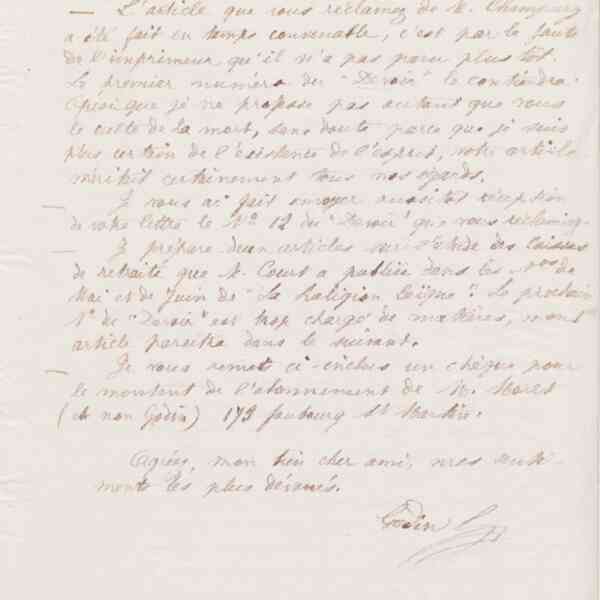 — L'article que vous réclamez de M. Champury
a été fait en temps convenable, c'est par la faute
de l'imprimeur qu'il n'a pas paru plus tôt.
Le premier numéro du "Devoir" le contiendra.
Quoique je ne propose pas autant que vous
le culte de la mort, sans doute parce que je suis
plus certain de l'existence de l'esprit, votre article
méritait certainement tous nos égards.
— Je vous ai fait envoyer aussitôt réception
de votre lettre le No 12 du "Devoir" que vous réclamiez.
— Je prépare deux articles sur l'étude des caisses
de retraite que M. Court a publiée dans les Nos de
Mai et de Juin de "La Religion laïque". Le prochain
No du "Devoir" est trop chargé de matières, mon
article paraîtra dans le suivant.
— Je vous remets ci-inclus un chèque pour
le montant de l'abonnement de M.
(et non Godin) 173 faubourg St Martin.
Agréez, mon bien cher ami, mes senti-
ments les plus dévoués.
Godin